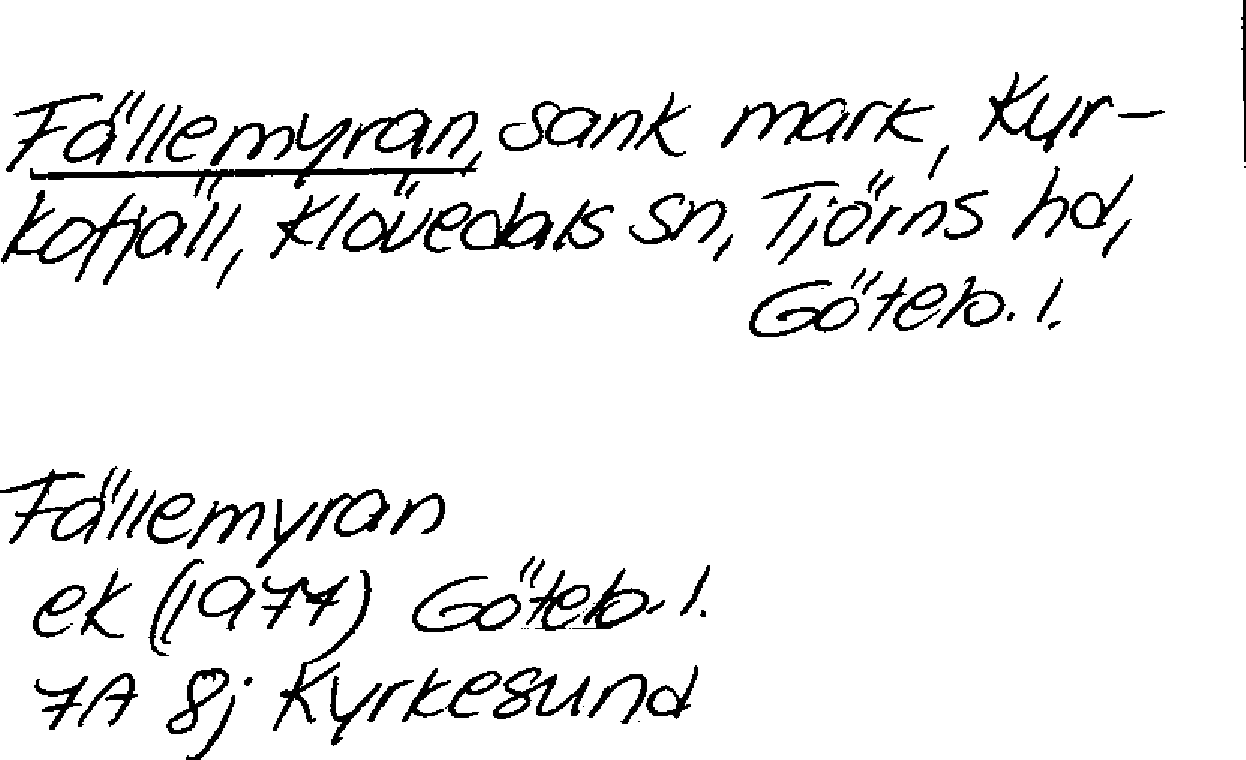 Fällemyran, sank mark, Kyr-
kofjäll, Klövedals sn, Tjörns hd,
Göteb. l.
Fällemyran
ek (1977) Göteb. l.
7A 8j Kyrkesund